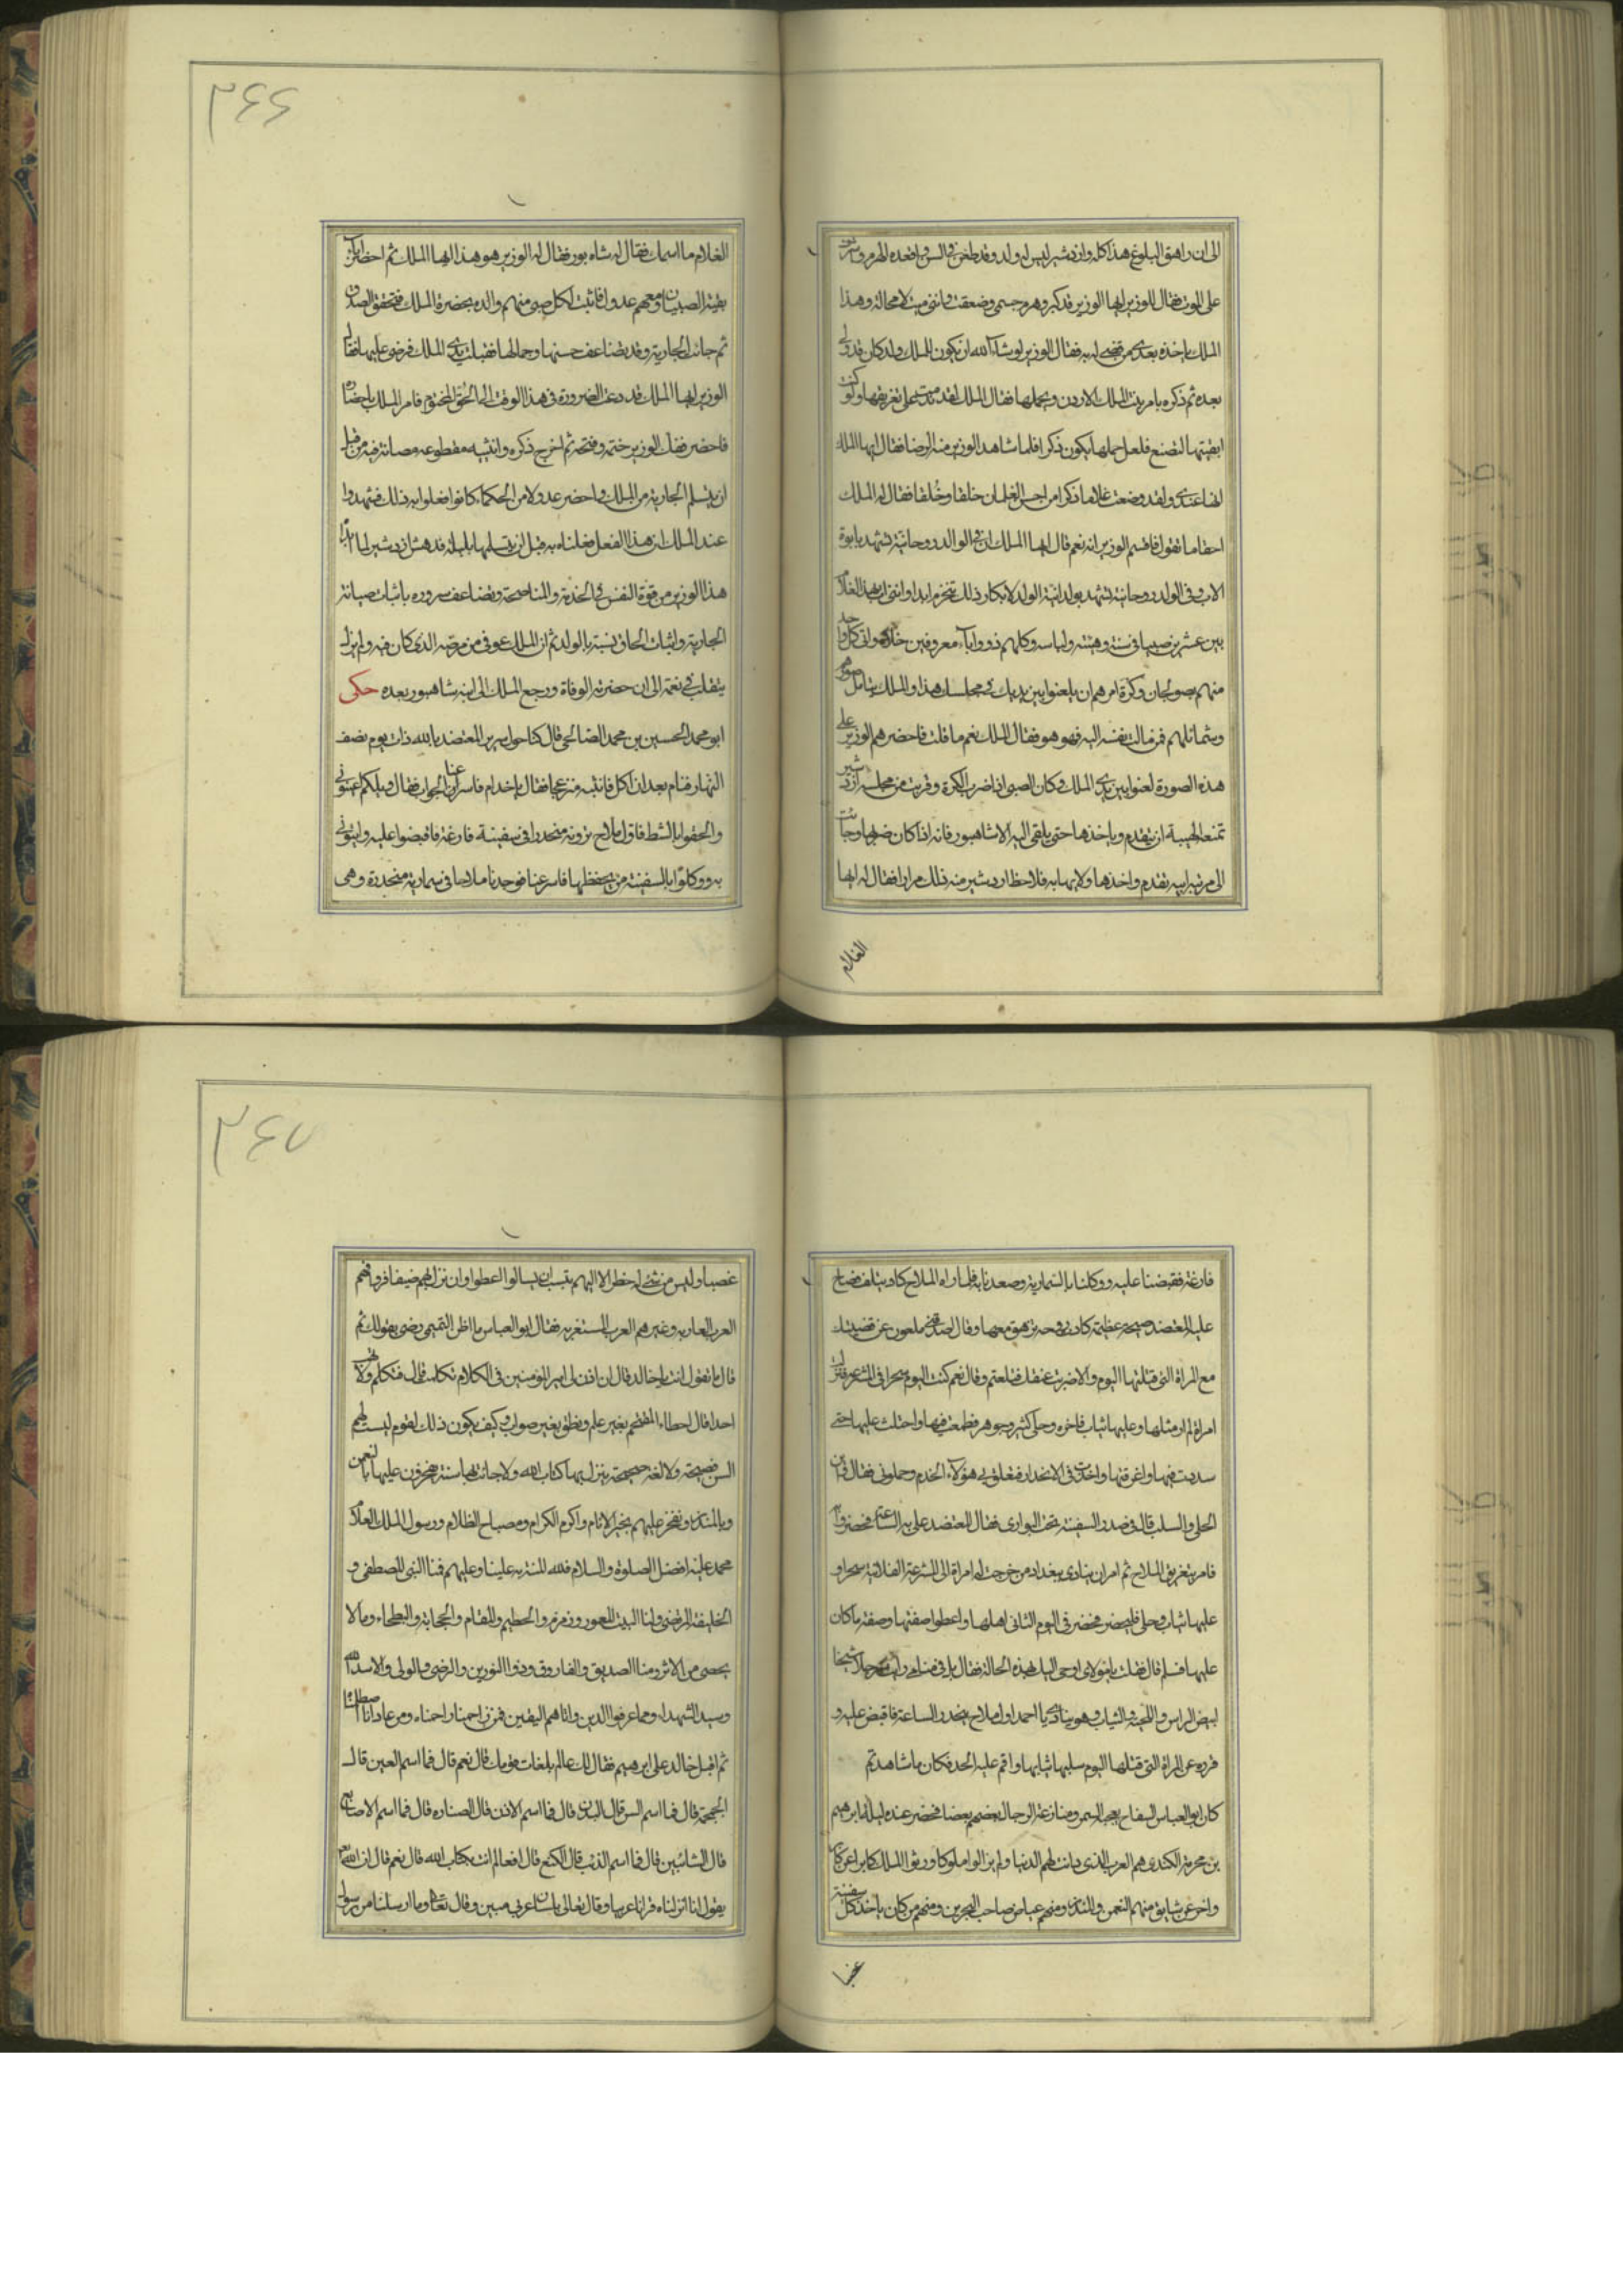 ۲۶۶
الى ان راهق البلوغ هذا كله واردشير ليس له ولد وقد طعن في السن واقعده الهرم واشرف
على الموت فقال للوزير ايها الوزير قد كبر وهرم جسمي وضعفت واني ميت لا محالة وهذا
الملك ياخذه بعدي من قضى له به فقال الوزير لو شاء الله ان يكون للملك ولد كان قد ولي
بعده ثم ذكره بامر بنت الملك الاردن وبحملها فقال الملك لقد ندمت على تغريقها ولو كنت
ابقيتها لتضع فلعل حملها يكون ذكرا فلما شاهد الوزير منه الرضا فقال ايها الملك
انها عندي ولقد وضعت غلاما ذكرا من احسن الغلمان خلقا وخُلقا فقال له الملك
احقا ما تقول فاقسم الوزير انه نعم قال ايها الملك ان في الوالد روحانية تشهد بابوة
الاب وفي الولد روحانية تشهد بولدانية الولد لا يكاد ذلك ينخرم ابدا وانني اتي بهذا الغلام
بين عشرين صبيا في سنه وهيئته ولباسه وكلهم ذووا اباء معروفين خلا هو واني كل واحد
منهم صولجان وكرة امرهم ان يلعبوا بين يديك في مجلسك هذا والملك يتامل صورهم
وشمائلهم فمن مالت نفسه اليه فهو هو فقال الملك نعم ما قلت فاحضرهم الوزير على
هذه الصورة لعبوا بين يدي الملك فكان الصبي اذا ضرب الكرة وقربت من مجلس اردشير
تمنعه الهيبة ان يتقدم وياخذها حتى يلقى اليه الا شاهبور فانه اذا كان ضربها وجاءت
الى مرتبة ابيه تقدم واخذها ولا يهابه فلاحظ اردشير منه ذلك مرارا فقال له ايها
الغلام
الغلام ما اسمك فقال له شاه بور فقال له الوزير هو هذا ايها الملك ثم احضر اباء
بقية الصبيان ومعهم عدول فاثبت لكل صبي منهم والده بحضرة الملك فتحقق الصدق
ثم جاءت الجارية وقد تضاعف حسنها وجمالها فقبلت يدي الملك فرضي عليها فقال
الوزير ايها الملك قد دعت الضرورة في هذا الوقت الى الحُق المختوم فامر الملك باحضاره
فاحضر ففك الوزير ختمه وفتحه ثم اخرج ذكره وانثييه مقطوعه مصانة فيه من قبل
ان يتسلم الجارية من الملك واحضر عدولا من الحكماء كانوا فعلوا به ذلك فشهدوا
عند الملك ان هذا الفعل فعلناه به قبل ان يتسلمها بليلة فدهش اردشير لما
هذا الوزير من قوة النفس في الخدمة والمناصحة وتضاعف سروره باثبات صيانة
الجارية واثبات الحاق نسبة بالولد ثم ان الملك عوفي من مرضه الذي كان فيه ولم يزل
يتقلب في نعمة الى ان حضرته الوفاة ورجع الملك الى ابنه شاهبور بعده حكى
ابو محمد الحسين بن محمد الصالحي قال كنا حول سرير المعتضد بالله ذات يوم نصف
النهار فنام بعد ان اكل فانتبه منزعجا فقال يا خدام فاسرعنا الجواب فقال ويلكم اعينوني
والحقوا بالشط فاول ملاح ترونه منحدرا في سفينة فارغة فاقبضوا عليه وايتوني
به ووكلوا بالسفينة من يحفظها فاسرعنا فوجدنا ملاحا في سمارية منحدرة وهي
۲۶۷
فارغة فقبضنا عليه ووكلنا بالسمارية وصعدنا به فلما راه الملاح كاد يتلف فصاح
عليه المعتضد صيحة عظيمة كادت روحه تزهق معها وقال اصدقني يا ملعون عن قضيتك
مع المراة التي قتلتها اليوم والا ضربت عنقك فتلعثم وقال نعم كنت اليوم سحرا في المشرعة فنزلت
امراة لم ار مثلها وعليها ثياب فاخره وحلي كثير وجوهر فطمعت فيها واحتلت عليها حتى
سددت فيها واغرقتها واخذت في الانحدار فتعلق بي هؤلاء الخدم وحملوني فقال واين
الحلي والسلب قال في صدر السفينة تحت البواري فقال المعتضد علي به الساعة فحضروا به
فامر بتغريق الملاح ثم امر ان ينادي ببغداد من خرجت له امراة الى المشرعة الفلانية سحرا و
عليها ثياب وحلي فليحضر فحضر في اليوم الثاني اهلها واعطوا صفتها وصفة ما كان
عليها فسلم قال فقلت يا مولاي اوحي اليك بهذه الحالة فقال بل في منامي رايت رجلا شيخا
ابيض الراس واللحية والثياب وهو ينادي يا احمد اول ملاح ينحدر الساعة فاقبض عليه و
قرره عن المراة التي قتلها اليوم سلبها ثيابها واقم عليه الحد فكان ما شاهدتم
كان ابو العباس السفاح يعجبه السمر ومنازعة الرجال بعضهم بعضا فحضر عنده ليلة ابرهيم
بن مخرمة الكندي هم العرب الذي دانت لهم الدنيا ولم يزالوا ملوكا ورثوا الملك كابرا عن كابر
واخر عن سابق منهم النعمن والمنذر ومنهم عياض صاحب البحرين ومنهم من كان ياخذ كل سفينة
غصبا
غصبا وليس من شيء له خطر الا اليهم ينسب ان يسالوا اعطوا وان نزل بهم ضيفا قروا فهم
العرب العاربه وغيرهم العرب المستعربه فقال ابو العباس ما اظن التميمي رضي بقولك ثم
قال ما تقول انت يا خالد قال ان اذن لي امير المؤمنين في الكلام تكلمت قال فتكلم ولا تهب
احدا قال اخطاء المقتحم بغير علم ونطق بغير صواب وكيف يكون ذلك لقوم ليست لهم
السن فصيحة ولا لغة صحيحة نزل بها كتاب الله ولا جاءت بها سنة يفخرون علينا بالنعمن
وبالمنذر ونفخر عليهم بخير الانام واكرم الكرام ومصباح الظلام ورسول الملك العلام
محمد عليه افضل الصلوة والسلام فلله المنة به علينا وعليهم فمنا النبي المصطفى و
الخليفة المرتضى ولنا البيت المعمور وزمزم والحطيم والمقام والحجابة والبطحاء وما لا
يحصى من الاثر ومنا الصديق والفاروق وذوا النورين والرضي والولي والاسد الله
وسيد الشهداء وبنا عرفوا الدين واتاهم اليقين فمن زاحمنا زاحمناه ومن عادانا اصطلمنا
ثم اقبل خالد على ابرهيم فقال الك عالم بلغات قومك قال نعم قال فما اسم العين قال
الجحمة قال فما اسم السن قال الميدن قال فما اسم الاذن قال الصناره قال فما اسم الاصابع
قال الشناتير قال فما اسم الذئب قال الكنع قال افعالم انت بكتاب الله قال نعم قال ان الله
يقول انا انزلناه قرانا عربيا وقال تعالى بلسان عربي مبين وقال تعالى وما ارسلنا من رسول